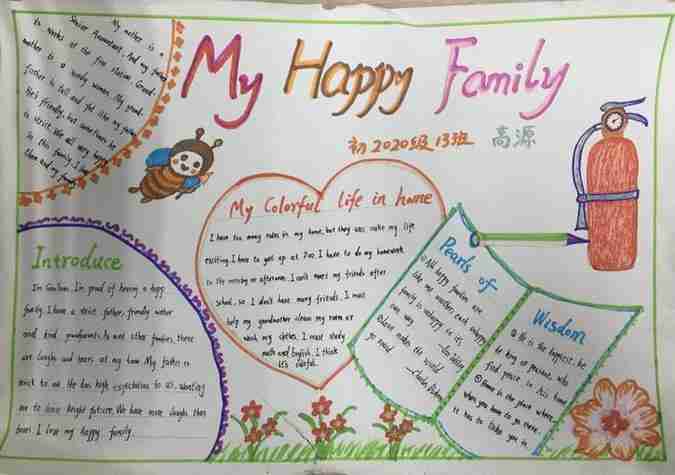 My Happy Family
初2020级13班 高源
My mother is a
Senior Accountant. And my father
is works at the fire station. Grand-
mother is a woman. My grand-
father is tall and just like my father
He's friendly, but sometimes he
is strict. We all very happy
in this family. I
them and my family
Introduce
I'm GaoYuan. I'm proud of having a happy
family. I have a strict father, friendly mother
and kind grandparents. As most other families, there
are laughs and tears at my home. My father is
strict to me. He has high expectation to us, wanting
me to have bright future. We have more laughs than
tears. I love my happy family.
My Colorful life in home
I have too many rules in my home, but they was make my life
exciting. I have to get up at 7:00. I have to do my homework
in the morning or afternoon. I can't meet my friends after
school, so I don't have many friends. I must
help my grandmother clean my room or
wash my clothes. I must study
math and English. I think
it's colorful.
Pearls of
① All happy families are
like one another; each unhappy
family is unhappy in its
own way.
② Love makes the world
go round.
Wisdom
① He is the happiest, be
he king or peasant, who
find peace in his home
② Home is the place where,
when you have to go there,
it has to take you in